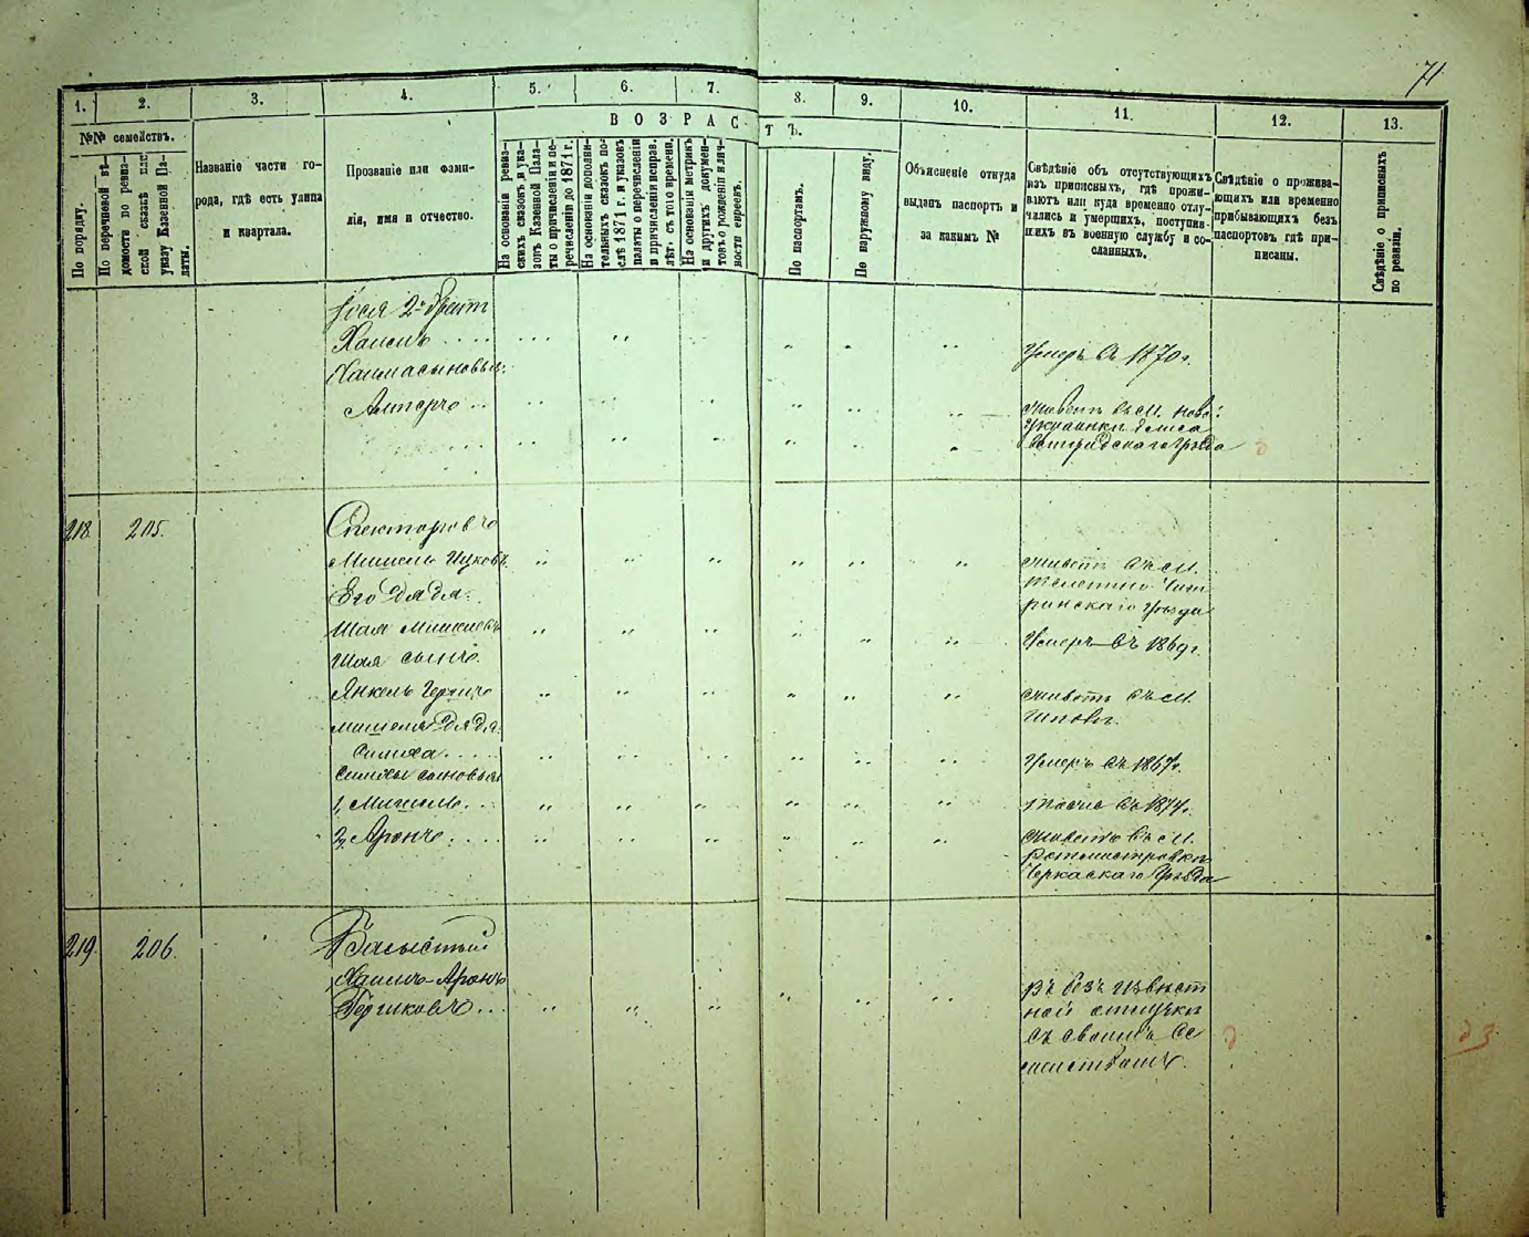 71
1. 2. 3. 4. 5. 6. 7. 8. 9. 10. 11. 12. 13.
№№ семействъ.
По порядку.
По перечневой вѣ-
домости по ревиз-
ской сказкѣ или
указу Казенной Па-
латы.
Названіе части го-
рода, гдѣ есть улица
и квартала.
Прозваніе или фами-
лія, имя и отчество.
ВОЗРАСТЪ.
На основаніи ревиз-
скихъ сказокъ и ука-
зовъ Казенной Пала-
ты о причисленіи и пе-
речисленіи до 1871 г.
На основаніи дополни-
тельныхъ сказокъ по-
слѣ 1871 г. и указовъ
палаты о перечисленіи
и причисленіи исправ.
лѣт. съ того времени.
На основаніи метрикъ
и другихъ докумен-
товъ о рожденіи и лич-
ности евреевъ.
По паспортамъ.
По наружному виду.
Объясненіе откуда
выданъ паспортъ и
за какимъ №
Свѣдѣніе об отсутствующихъ
изъ приписныхъ, гдѣ прожи-
ваютъ или куда временно отлу-
чались и умершихъ, поступив-
шихъ въ военную службу и со-
сланныхъ.
Свѣдѣніе о прожива-
ющихъ или временно
прибывающихъ безъ
паспортовъ гдѣ при-
писаны.
Свѣдѣніе о приписныхъ
по ревизіи.
2й братъ
Хаимъ
Умеръ въ 1870 г.
Хаима сыновья:
Алтеръ
живетъ въ м. Ново-
украинкѣ Елиса
ветградскаго уѣзда
218. 205. Спекторовъ
Мошель Ицковъ.
живетъ въ м.
Телепино Чиги
ринскаго уѣзда
Его дядя:
Шая Мошелевъ
Умеръ въ 1869 г.
Шая сынъ.
Янкель Гершъ
живетъ въ м.
Шполѣ.
Мошеля дядя.
Симха
Умеръ въ 1867 г.
Симхи сыновья
1, Мошель.
тоже въ 1874 г.
2, Аронъ.
живетъ въ м.
Ротмистровкѣ
Черкаскаго уѣзда
219. 206.
Хаимъ-Аронъ
Гершковъ
въ безъ извѣст
ной отлучкѣ
съ своимъ се
мействомъ.